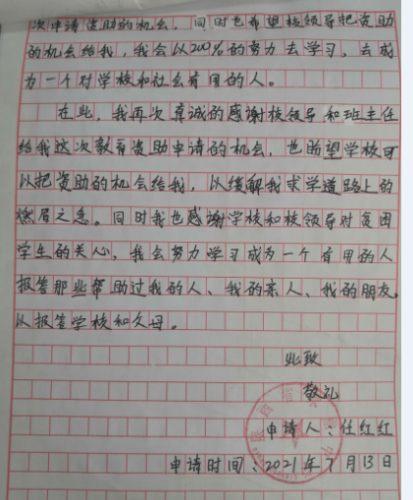 次申请资助的机会，同时也希望校领导把资助
的机会给我，我会以200%的努力去学习，去成
为一个对学校和社会有用的人。
在此，我再次真诚的感谢校领导和班主任
给我这次教育资助申请的机会，也盼望学校可
以把资助的机会给我，以缓解我求学道路上的
燃眉之急。同时我也感谢学校和校领导对贫困
学生的关心，我会努力学习成为一个有用的人
报答那些帮助过我的人、我的亲人、我的朋友，
以报答学校和父母。
此致
敬礼
申请人：任红红
申请时间：2021年7月13日